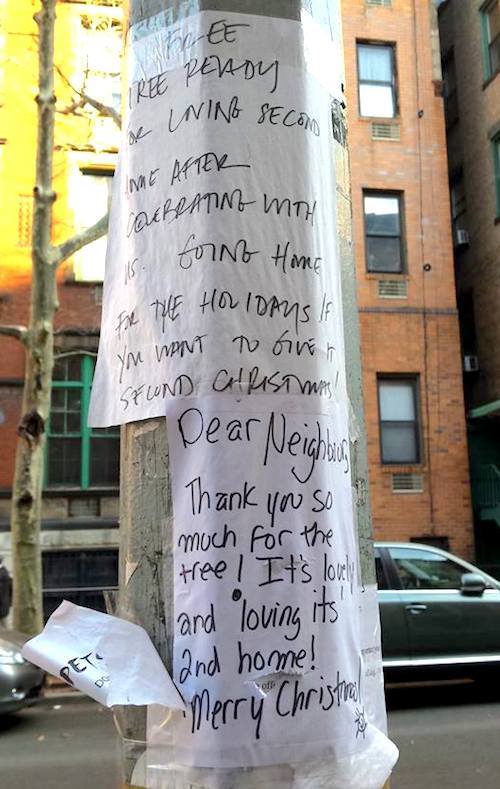 FREE
TREE READY
OR LIVING SECOND
AFTER
CELEBRATING WITH
US. GOING HOME
FOR THE HOLIDAYS IF
YOU WANT TO GIVE IT
SECOND CHRISTMAS!
Dear Neighbour,
Thank you so
much for the
tree! It's lovely
and loving its
2nd home!
Merry Christmas
PET
DO
off